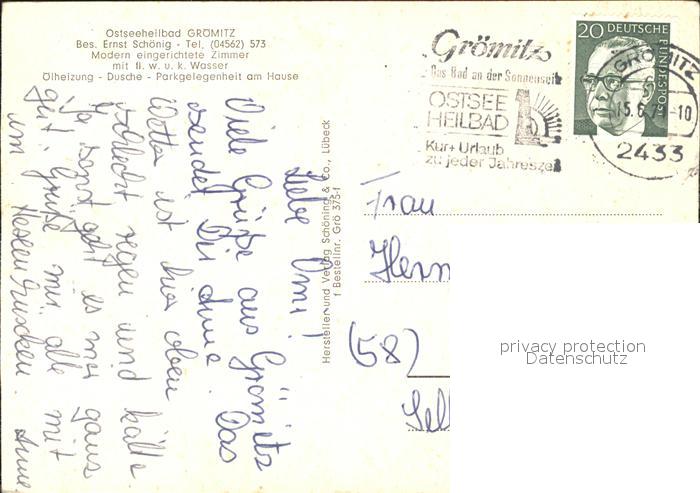 Ostseeheilbad GRÖMITZ
Bes. Ernst Schönig - Tel. (04562) 573
Modern eingerichtete Zimmer
mit fl. w. u. k. Wasser
Ölheizung - Dusche - Parkgelegenheit am Hause
Grömitz
Das Bad an der Sonnenseite
OSTSEE
HEILBAD
Kur + Urlaub
zu jeder Jahresze
20 DEUTSCHE
BUNDESPOST
GRÖMITZ
15.6.7 -10
2433
Hersteller und Verlag Schöning & Co., Lübeck
f Bestellnr. Grö 375
Liebe Omi!
Viele Grüße aus Grömitz
sendet Dir Anne. Das
Wetter ist hier oben
schlecht regen und kälte
Ja sonst geht es mir ganz
gut. Grüße mir alle mit
Anne
Frau
Herm
(58)
privacy protection
Datenschutz